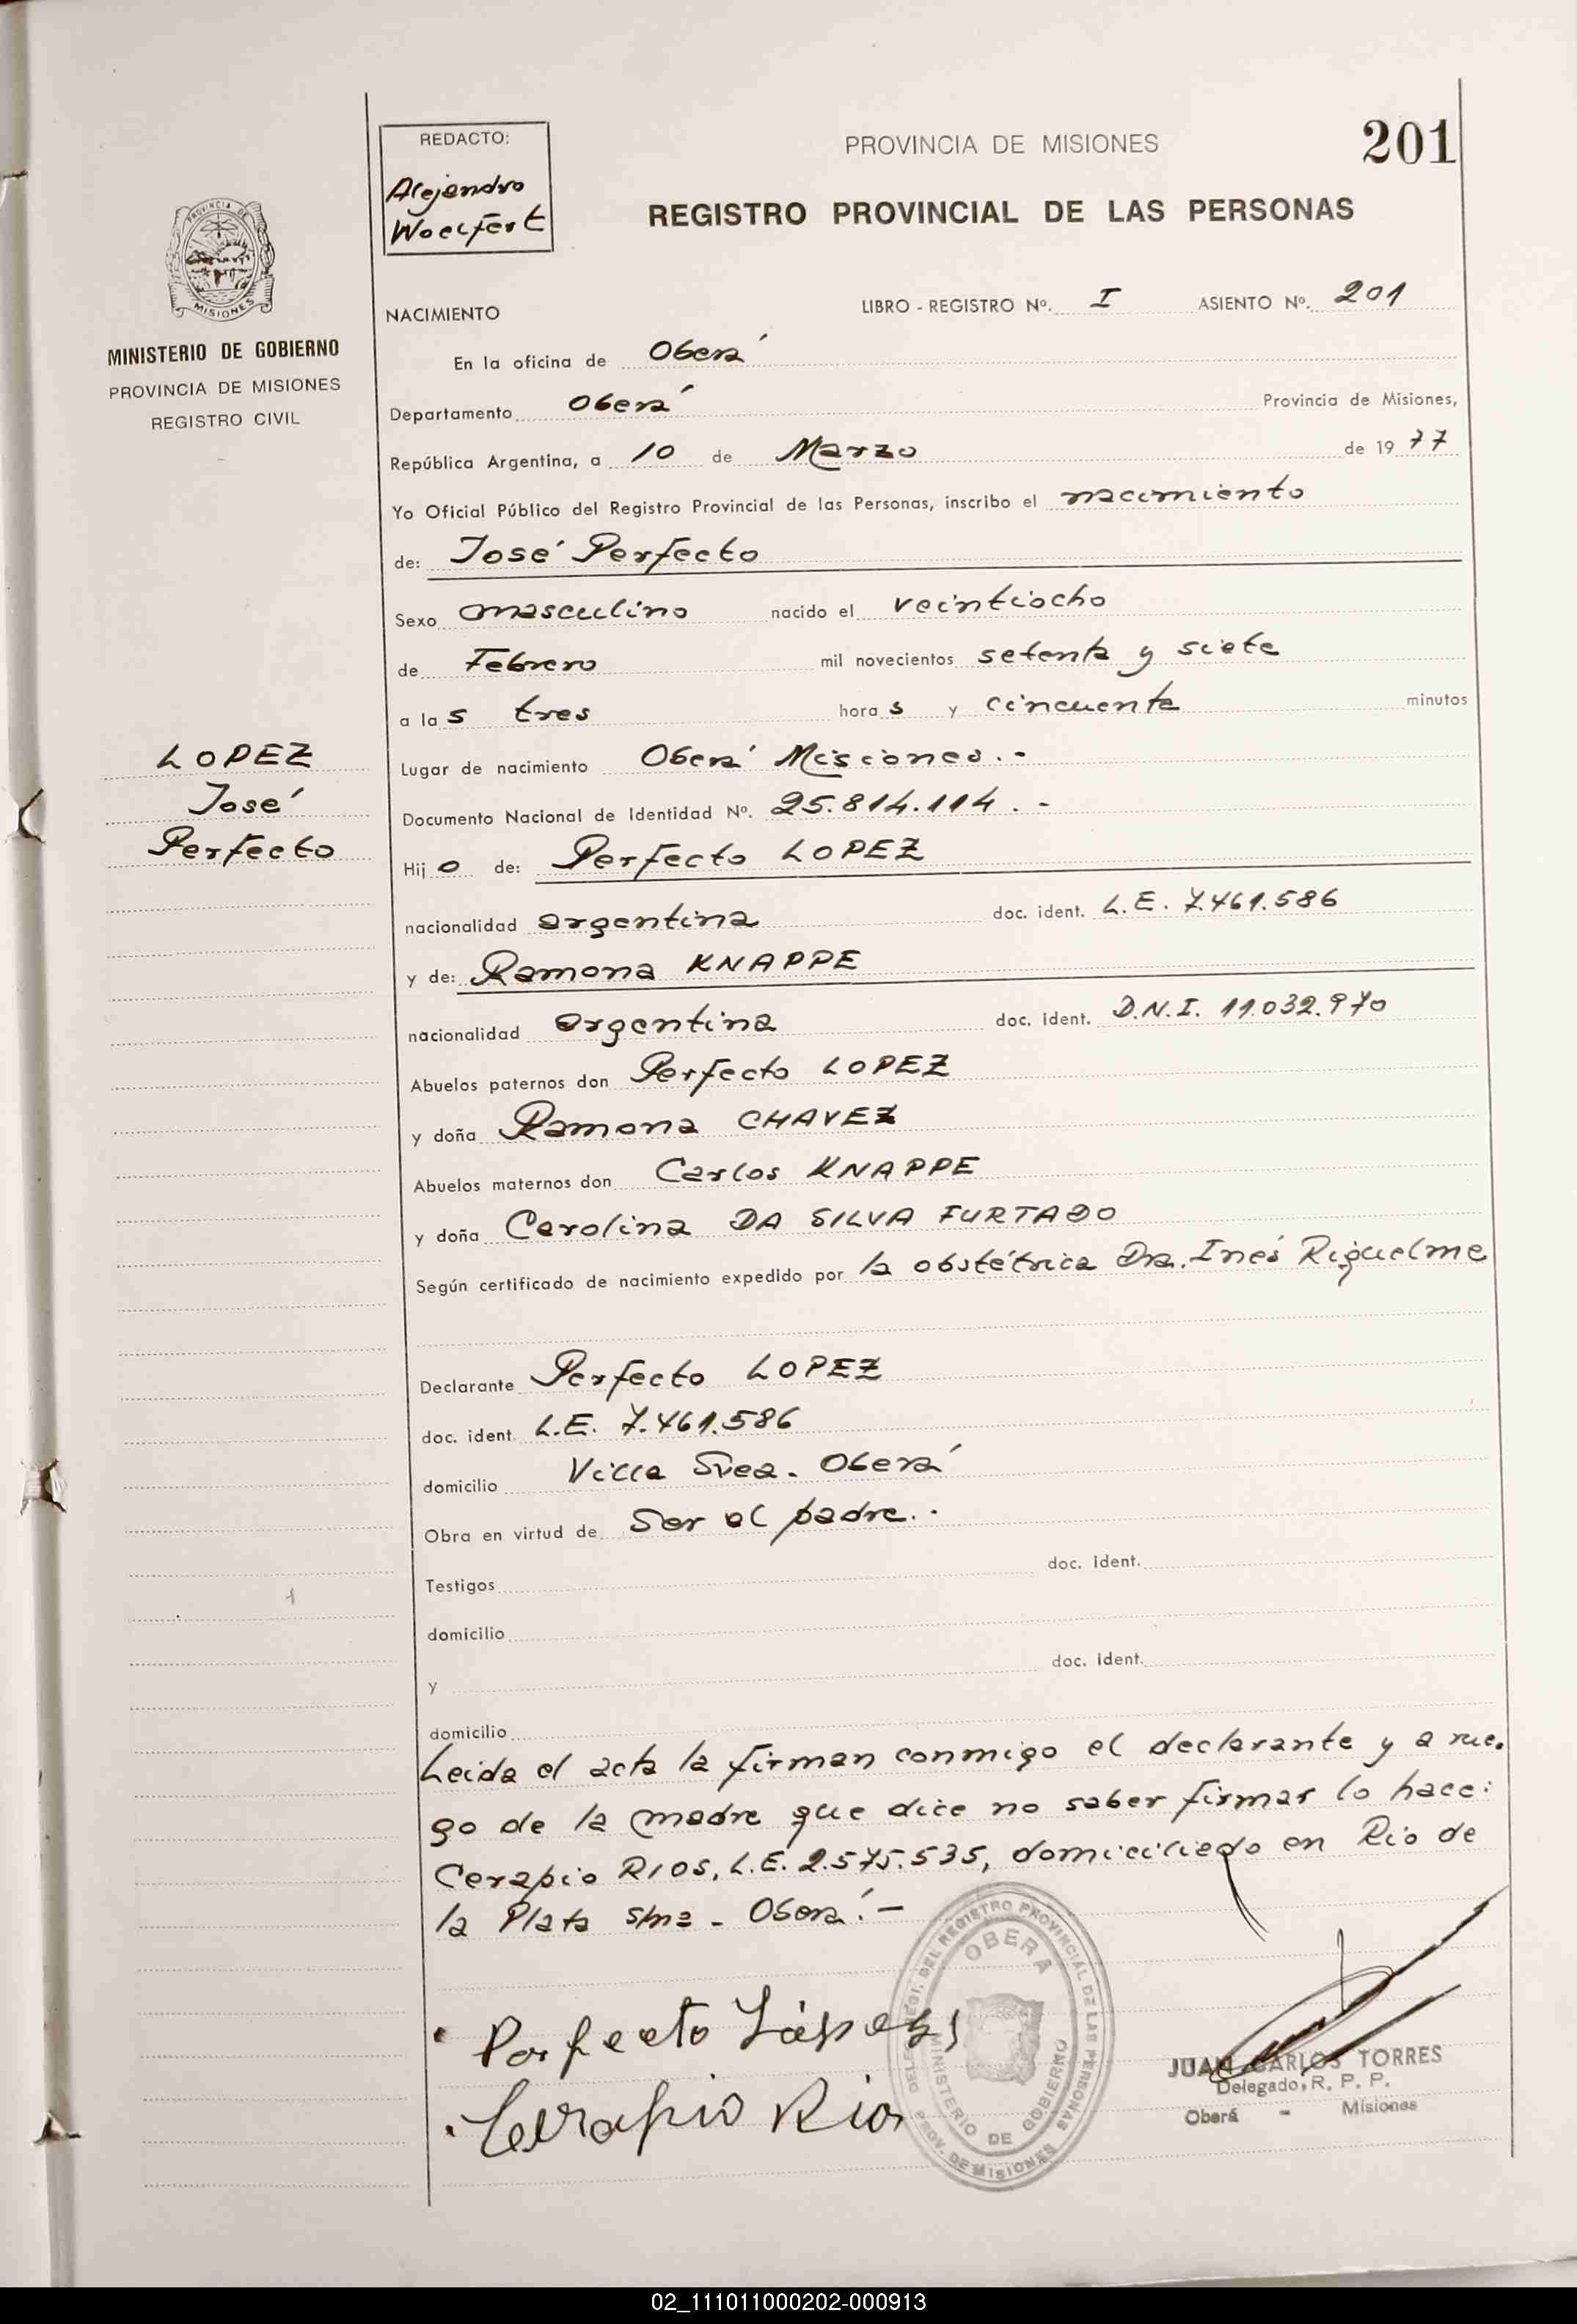 REDACTO:
Alejandro
Woelfert
PROVINCIA DE MISIONES
201
REGISTRO PROVINCIAL DE LAS PERSONAS
PROVINCIA DE
MISIONES
MINISTERIO DE GOBIERNO
PROVINCIA DE MISIONES
REGISTRO CIVIL
NACIMIENTO LIBRO - REGISTRO Nº. I ASIENTO Nº. 201
En la oficina de Oberá
Departamento Oberá Provincia de Misiones,
República Argentina, a 10 de Marzo de 1977
Yo Oficial Público del Registro Provincial de las Personas, inscribo el nacimiento
de: José Perfecto
Sexo masculino nacido el veintiocho
de Febrero mil novecientos setenta y siete
a las tres horas y cincuenta minutos
LOPEZ
José
Perfecto
Lugar de nacimiento Oberá Misiones.-
Documento Nacional de Identidad Nº. 25.814.114.-
Hijo de: Perfecto LOPEZ
nacionalidad argentina doc. ident. L.E. 7.461.586
y de: Ramona KNAPPE
nacionalidad argentina doc. ident. D.N.I. 11.032.970
Abuelos paternos don Perfecto LOPEZ
y doña Ramona CHAVEZ
Abuelos maternos don Carlos KNAPPE
y doña Carolina DA SILVA FURTADO
Según certificado de nacimiento expedido por la obstétrica Dra. Inés Riquelme
Declarante Perfecto LOPEZ
doc. ident. L.E. 7.461.586
domicilio Villa Svea. Oberá
Obra en virtud de Ser el padre.-
Testigos doc. ident.
domicilio
y doc. ident.
domicilio
Leida el acta la firman conmigo el declarante y a rue-
go de la madre que dice no saber firmar lo hace:
Cerapio RIOS, L.E. 2.575.535, domiciliado en Rio de
la Plata s/nº - Oberá.-
Perfecto López
Cerapio Rios
DEL REGISTRO PROVINCIAL DE LAS PERSONAS
OBERA
MINISTERIO DE GOBIERNO
PROV. DE MISIONES
JUAN CARLOS TORRES
Delegado, R. P. P.
Oberá - Misiones
02_111011000202-000913